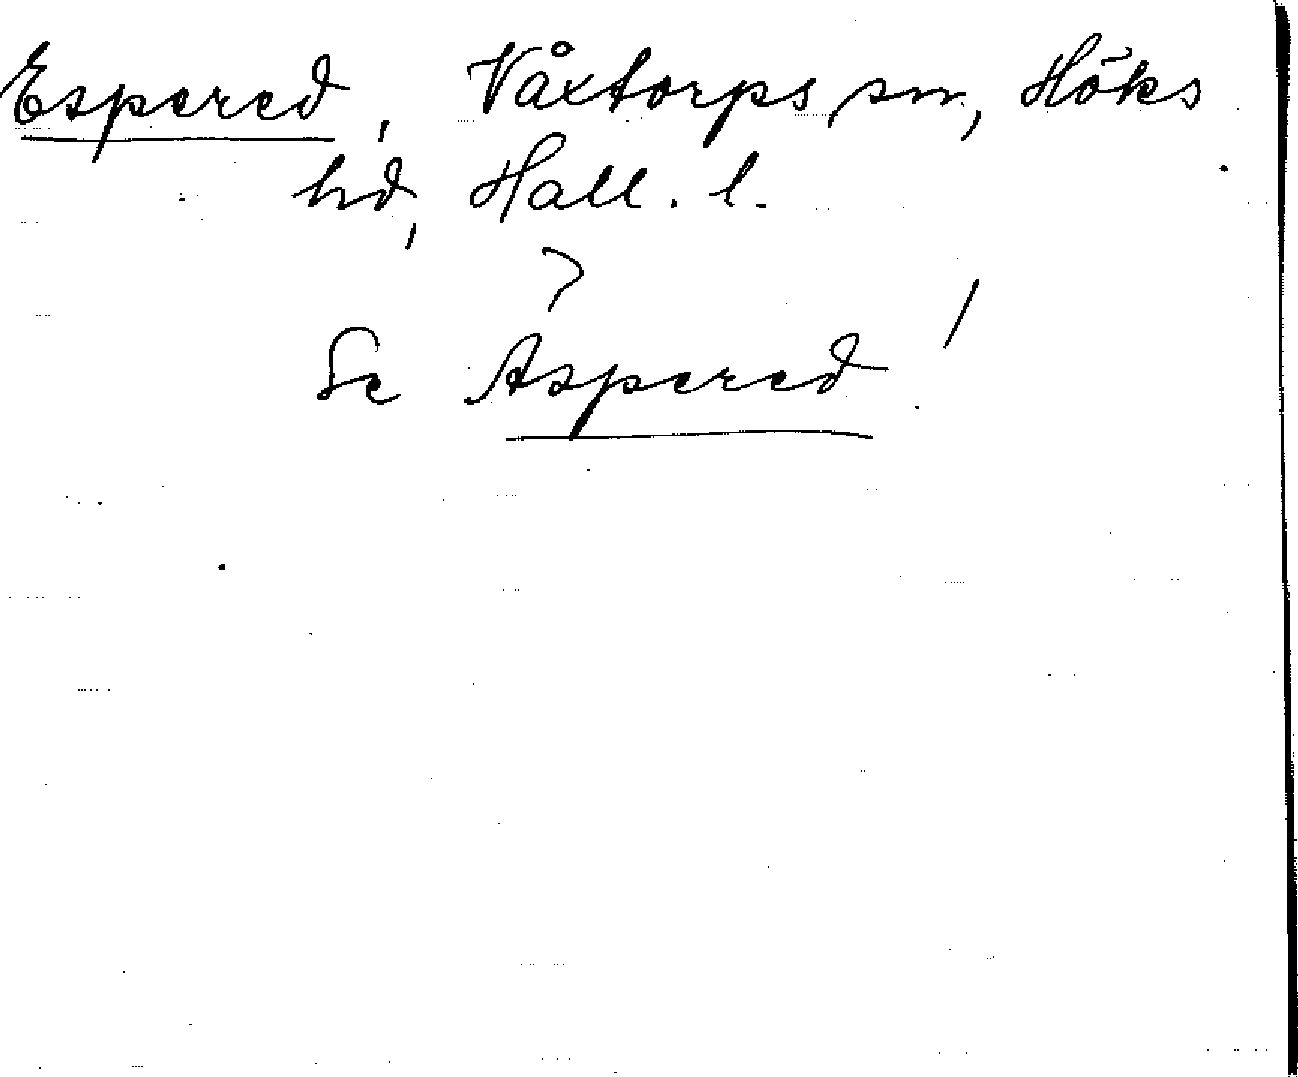 Espered, Våxtorps sn, Höks
hd, Hall. l.
Se Aspered!